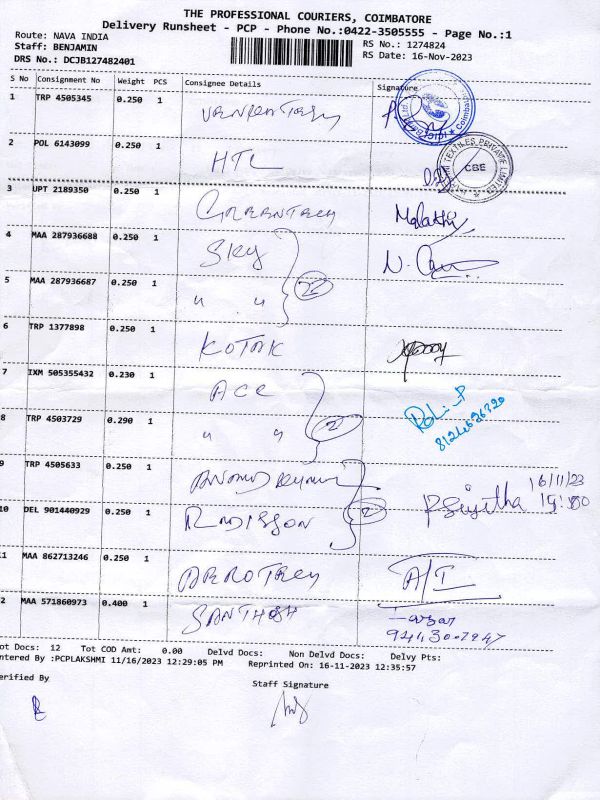 THE PROFESSIONAL COURIERS, COIMBATORE
Delivery Runsheet - PCP - Phone No.:0422-3505555 - Page No.:1
Route: NAVA INDIA
RS No.: 1274824
Staff: BENJAMIN
RS Date: 16-Nov-2023
DRS No.: DCJB127482401
S No Consignment No Weight PCS Consignee Details Signature
1 TRP 4505345 0.250 1
2 POL 6143099 0.250 1 HTL
CBE
3 UPT 2189350 0.250 1 GREENTECH Malathi
4 MAA 287936688 0.250 1 SKY
5 MAA 287936687 0.250 1 " "
6 TRP 1377898 0.250 1 KOTAK
7 IXM 505355432 0.230 1 ACE
8 TRP 4503729 0.290 1 " " 2
9 TRP 4505633 0.250 1 16/11/23
10 DEL 901440929 0.250 1 RADISSON 2
11 MAA 862713246 0.250 1 AEROTECH A/I
2 MAA 571860973 0.400 1 SANTHOSH
ot Docs: 12 Tot COD Amt: 0.00 Delvd Docs: Non Delvd Docs: Delvy Pts:
ntered By :PCPLAKSHMI 11/16/2023 12:29:05 PM Reprinted On: 16-11-2023 12:35:57
erified By
Staff Signature